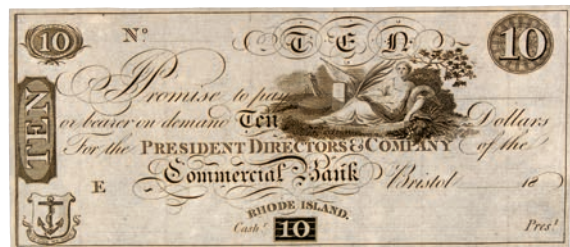 10 Nº TEN 10
Promise to pay
or bearer on demand Ten Dollars
TEN
For the PRESIDENT DIRECTORS & COMPANY of the
E Commercial Bank Bristol 18
RHODE ISLAND.
Cashr. 10 Prest.